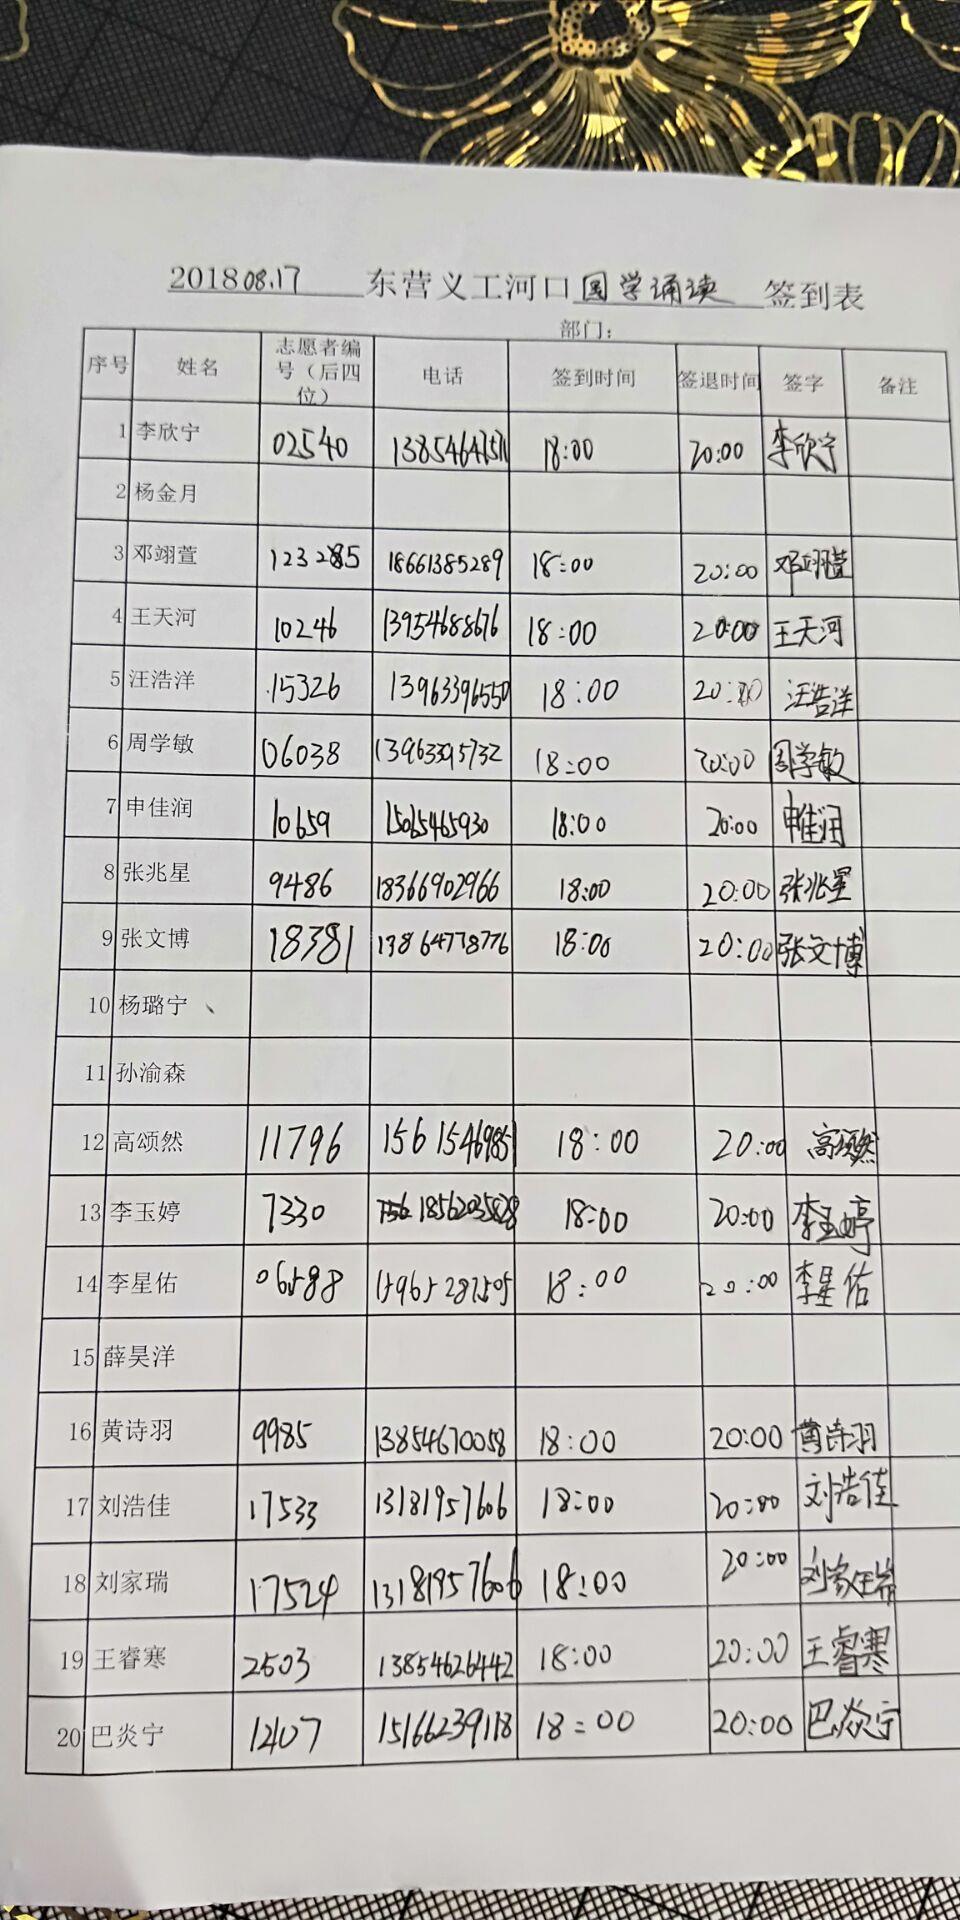 2018 08.17 东营义工河口国学诵读 签到表
部门：
序号 姓名 志愿者编号（后四位） 电话 签到时间 签退时间 签字 备注
1 李欣宁 02540 18:00 20:00 李欣宁
2 杨金月
3 邓翊萱 123285 18661385289 18:00 20:00 邓翊萱
4 王天河 10246 13954688676 18:00 20:00 王天河
5 汪浩洋 15326 13963396550 18:00 20:00 汪浩洋
6 周学敏 06038 13963395732 18:00 20:00 周学敏
7 申佳润 10659 15065465930 18:00 20:00 申佳润
8 张兆星 9486 18366902966 18:00 20:00 张兆星
9 张文博 18381 13864778776 18:00 20:00 张文博
10 杨璐宁
11 孙渝森
12 高颂然 11796 15615469851 18:00 20:00 高颂然
13 李玉婷 7330 18562035828 18:00 20:00 李玉婷
14 李星佑 06588 15965287505 18:00 20:00 李星佑
15 薛昊洋
16 黄诗羽 9985 13854670058 18:00 20:00 黄诗羽
17 刘浩佳 17533 13181957606 18:00 20:00 刘浩佳
18 刘家瑞 17524 13181957606 18:00 20:00 刘家瑞
19 王睿寒 2503 13854626442 18:00 20:00 王睿寒
20 巴炎宁 1207 15166239118 18:00 20:00 巴炎宁